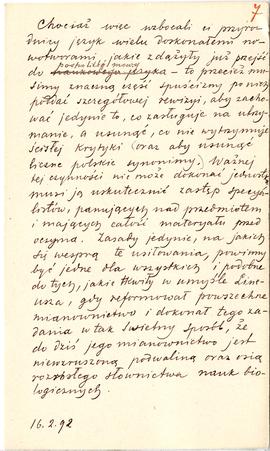 7
Chociaż więc wzbogacali ci przyro-
dnicy język wielu doskonałemi no-
wotworami, jakie zdążyły już przejść
pospolitej mowy
do naukowego języka – to przecież mu-
simy znaczną część spuścizny po nich
poddać szczegółowej rewizyi, aby zacho-
wać jedynie to, co zasługuje na utrzy-
manie, a usunąć, co nie wytrzymuje
ścisłej krytyki (oraz aby usunąć
liczne polskie synonimy). Ważnej
tej czynności nie może dokonać jednostka,
musi ją uskutecznić zastęp specya-
listów, panujących nad przedmiotem
i mających całość materyału przed
oczyma. Zasady jedynie, na jakich
się wesprą te usiłowania, powinny
być jedne dla wszystkich i podobne
do tych, jakie tkwiły w umyśle Line-
usza, gdy reformował powszechne
mianownictwo i dokonał tego za-
dania w tak świetny sposób, że
do dziś jego mianownictwo jest
niewzruszoną podwaliną oraz osią
rozrosłego słownictwa nauk bio-
logicznych.
16.2.92